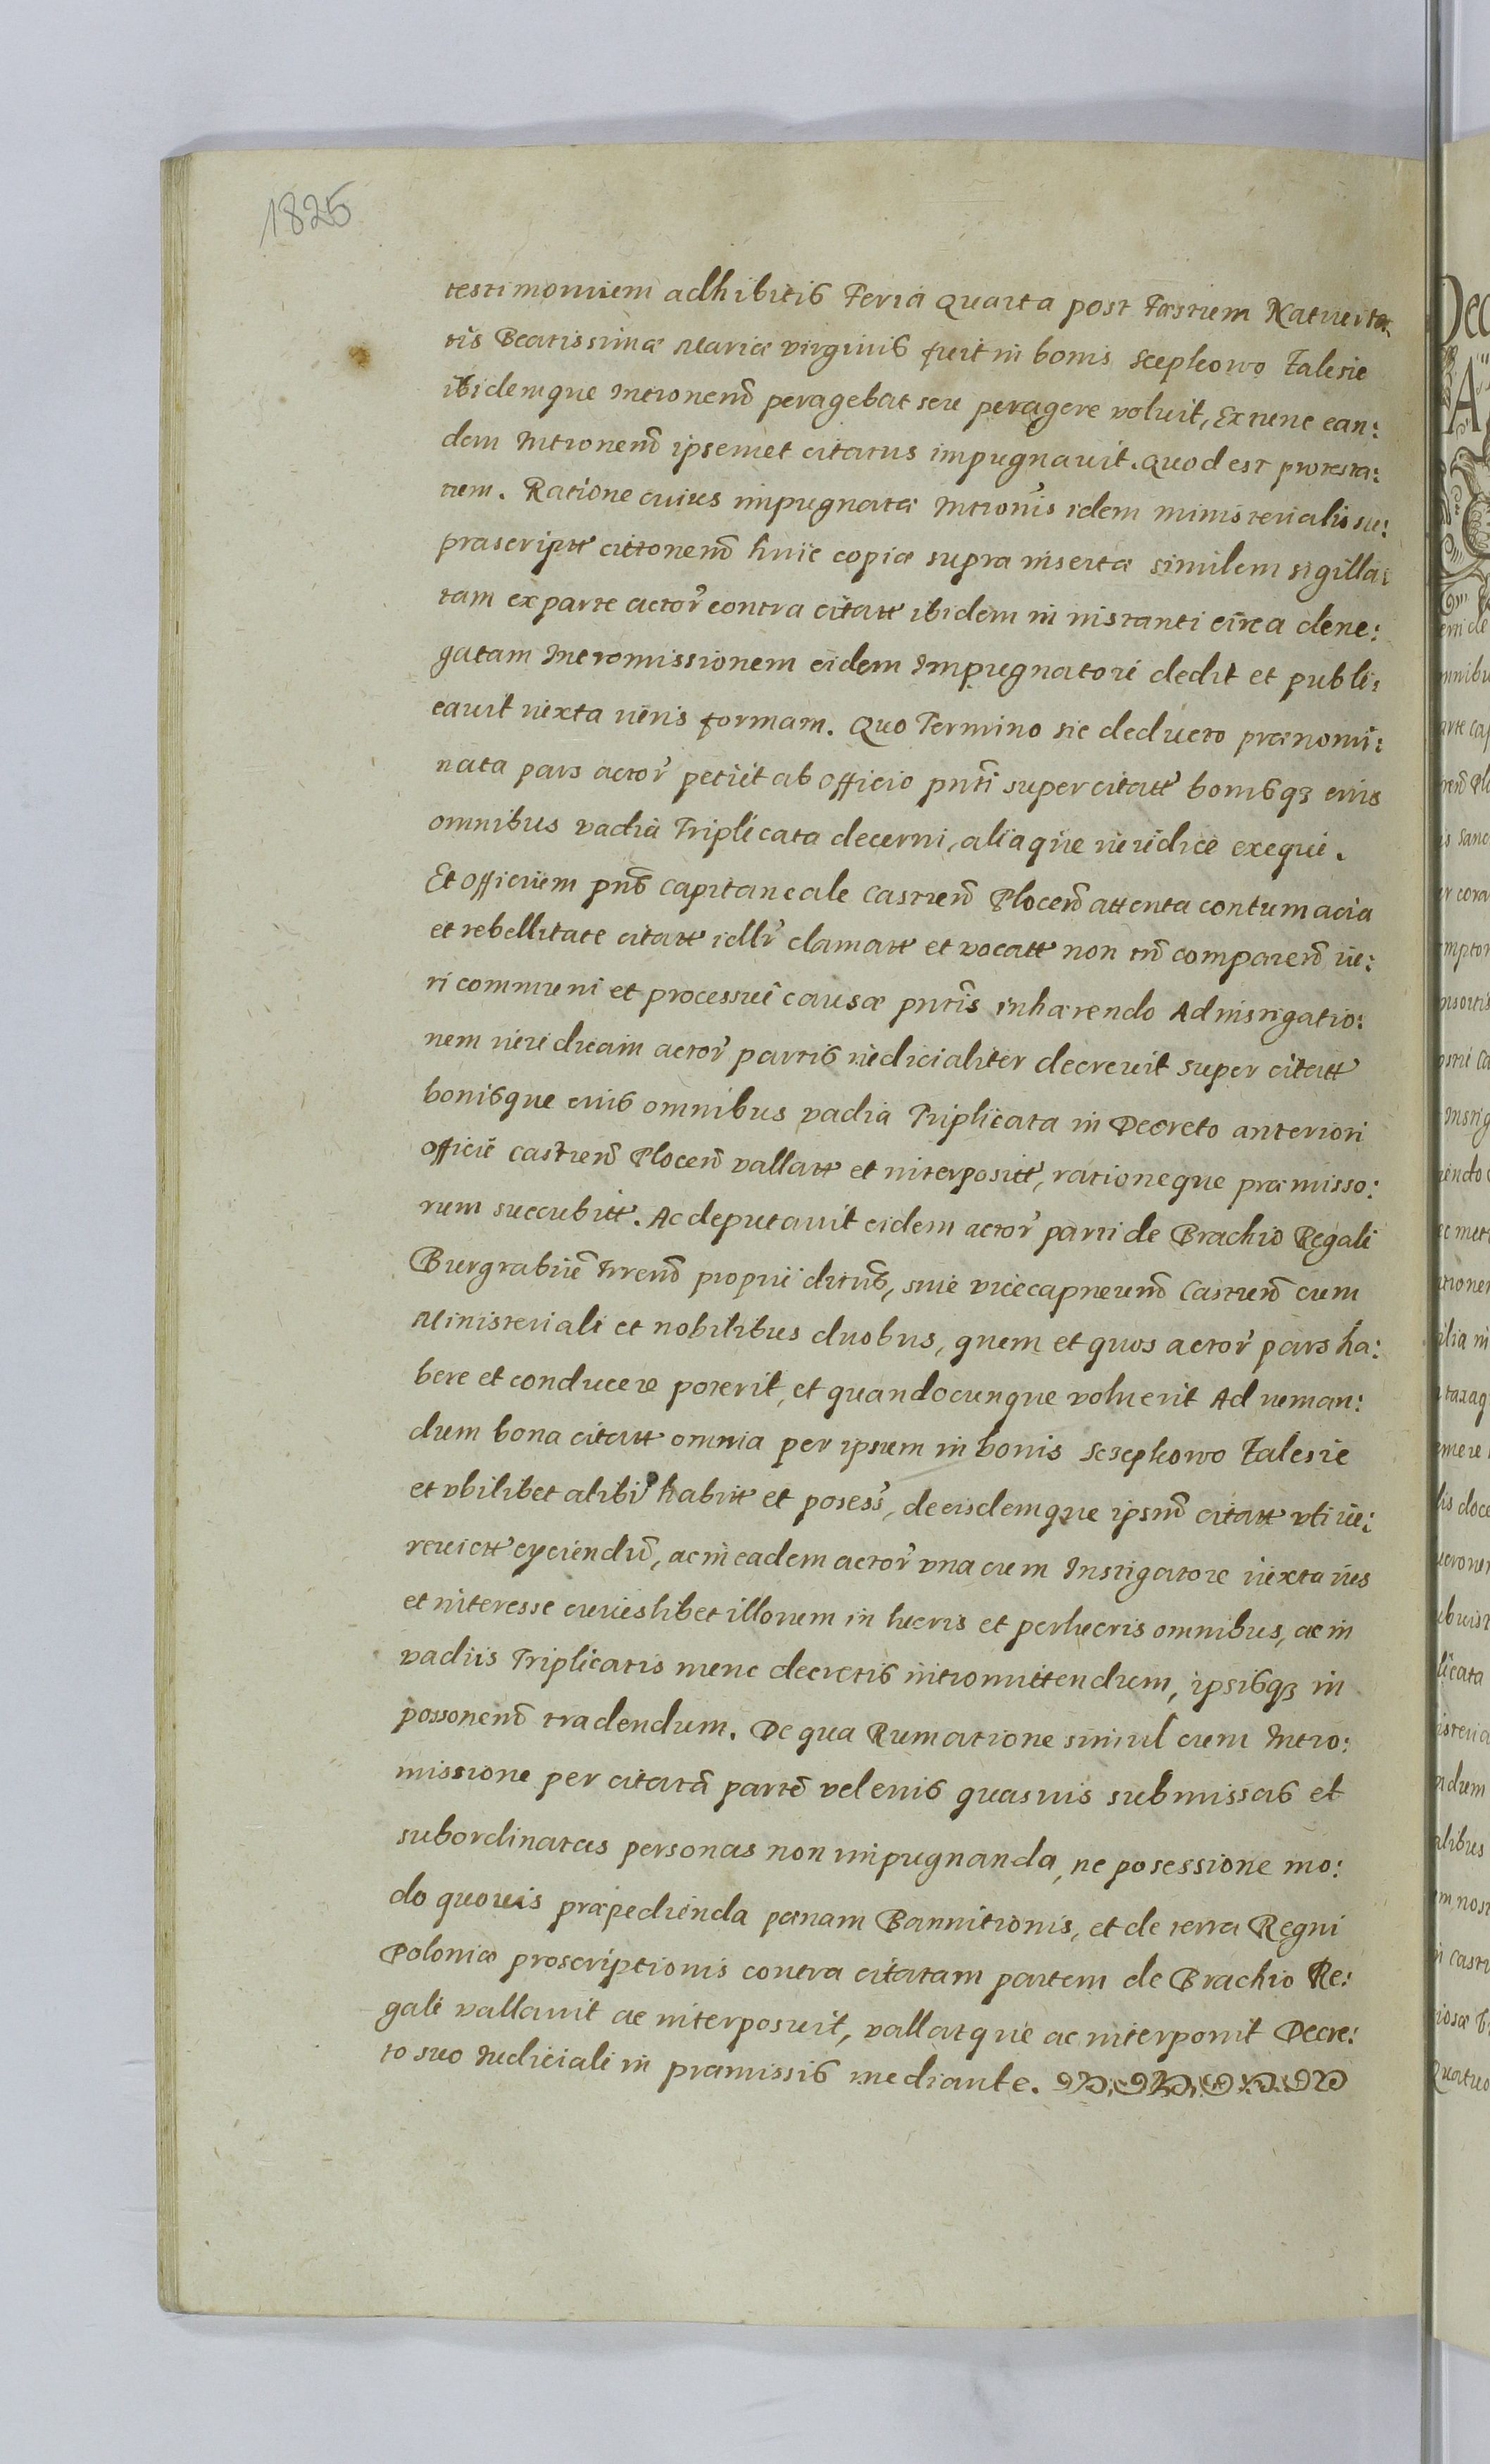 1825
testimonium adhibitis Feria quarta post Fæstum Natiuita-
tis Beatissimæ Mariæ virginis fuit in bonis Scephowo Falesie
ibidemque Intronenđ peragebat seu peragere voluit, Ex tunc ean:
dem Intronenđ ipsemet citatus impugnauit. Quod est protesta:
tum. Ratione cuius impugnatæ Intronis idem ministerialis su:
prascriptt cittonenđ huic copiæ supra insertæ similem sigilla:
tam ex parte actor̃ contra citatt ibidem in instanti circa dene:
gatam Intromissionem eidem Impugnatori dedit et publi:
cauit iuxta iuris formam. Quo Termino sic deducto prænomi:
nata pars actor̃ petiit ab officio pñti super citatt bonisq3 eius
omnibus vadia Triplicata decerni, aliaque iuridice exequi.
Et officium pñs Capitaneale Castrenđ Plocenđ attenta contumacia
et rebellitate citatt illr̃ clamatt et vocatt non tñ comparenđ iu:
ri communi et processui causæ pñtis inhærendo Ad instigatio:
nem iuridicam actor̃ partis iudicialiter decreuit super citatt
bonisque eius omnibus vadia Triplicata in Decreto anteriori
officii Castrenđ Plocenđ vallatt et interpositt, rationeque præmisso:
rum succubitt. Ac deputauit eidem actor̃ parti de Brachio Regali
Burgrabiũ Trrenđ propui ditũs, siue vicecapneunđ Castrenđ cum
Ministeriali et nobilibus duobus, quem et quos actor̃ pars ha:
bere et conducere poterit, et quandocunque voluerit Ad ruman:
dum bona citatt omnia per ipsum in bonis Sczephowo Falesie
et vbilibet alibi habitt et posess̃, de eisdemque ipsum̃ citatt vti iu:
reuictt eyciendũ, ac in eadem actor̃ vna cum Instigatore iuxta ius
et interesse cuiuslibet illorum in lucris et perlucris omnibus, ac in
vadiis Triplicatis nunc decretis intromittendum, ipsisq3 in
possonenđ tradendum. De qua Rumatione simul cum Intro:
missione per citatã partẽ vel eius quasuis submissas et
subordinatas personas non impugnanda, ne posessione mo:
do quouis præpedienda pænam Bannitionis, et de terra Regni
Poloniæ proscriptionis contra citatam partem de Brachio Re:
gali vallauit ac interposuit, vallatque ac interponit Decre:
to suo Iudiciali in præmissis mediante.